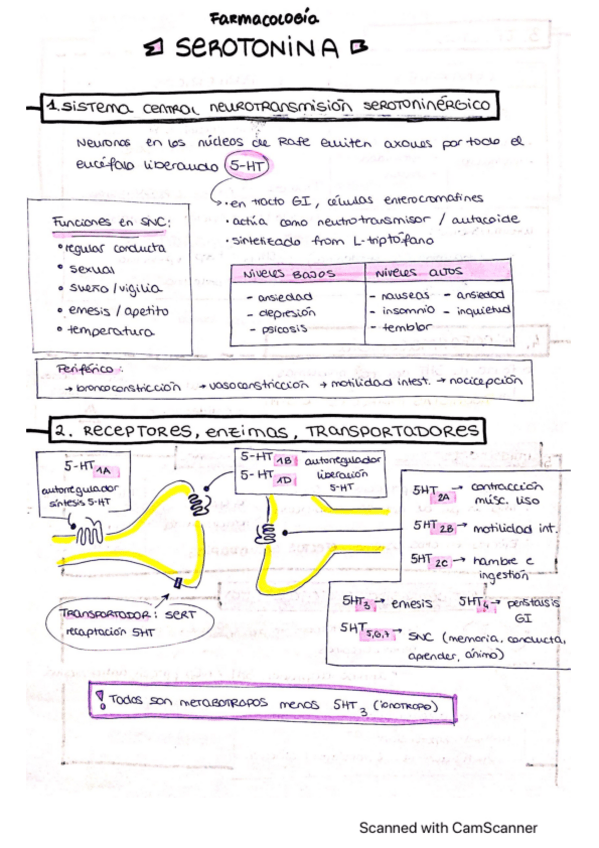 Farmacología
SEROTONINA
1. SISTEMA CENTRAL NEUROTRANSMISIÓN SEROTONINÉRGICO
Neuronas en los núcleos de Rafe emiten axones por todo el
encéfalo liberando 5-HT
• en tracto GI, células enterocromafines
• actúa como neurotransmisor / autacoide
• sintetizado from L-triptófano
Funciones en SNC:
• regular conducta
• sexual
• sueño / vigilia
• emesis / apetito
• temperatura
NIVELES BAJOS
- ansiedad
- depresión
- psicosis
NIVELES ALTOS
- nauseas - ansiedad
- insomnio - inquietud
- temblor
Periférico:
→ broncoconstricción → vasoconstricción → motilidad intest. → nocicepción
2. RECEPTORES, ENZIMAS, TRANSPORTADORES
5-HT 1A
autorregulador
síntesis 5-HT
5-HT 1B autorregulador
5-HT 1D liberación
5-HT
5HT 2A → contracción
músc. liso
5HT 2B → motilidad int.
5HT 2C → hambre e
ingestión
5HT 3 → emesis 5HT 4 → peristalsis
GI
5HT 5,6,7 → SNC (memoria, conducta,
aprender, ánimo)
TRANSPORTADOR: SERT
recaptación 5HT
! Todos son METABOTROPOS menos 5HT3 (ionotropo)
Scanned with CamScanner